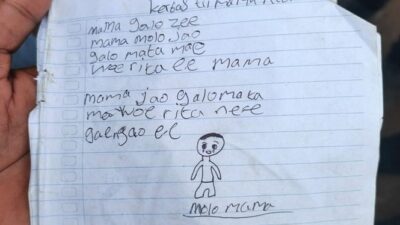 kertas tii mama reti
mama galo zee
mama molo ja'o
galo mata mae
woe rita ee mama

mama jao galo mata
mae woe rita nee
gae ngao ee
molo mama